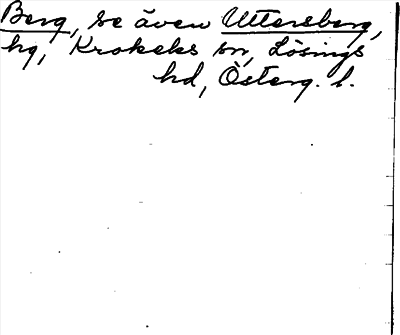 Berg, se även Uttersberg,
hg, Krokeks sn, Lösings
hd, Österg. l.